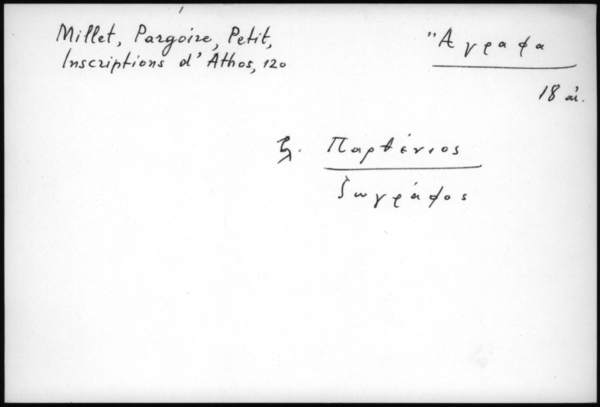 Millet, Pargoire, Petit,
Inscriptions d'Athos, 120
"Αγραφα
18 αἰ.
ζ. Παρθένιος
ζωγράφος